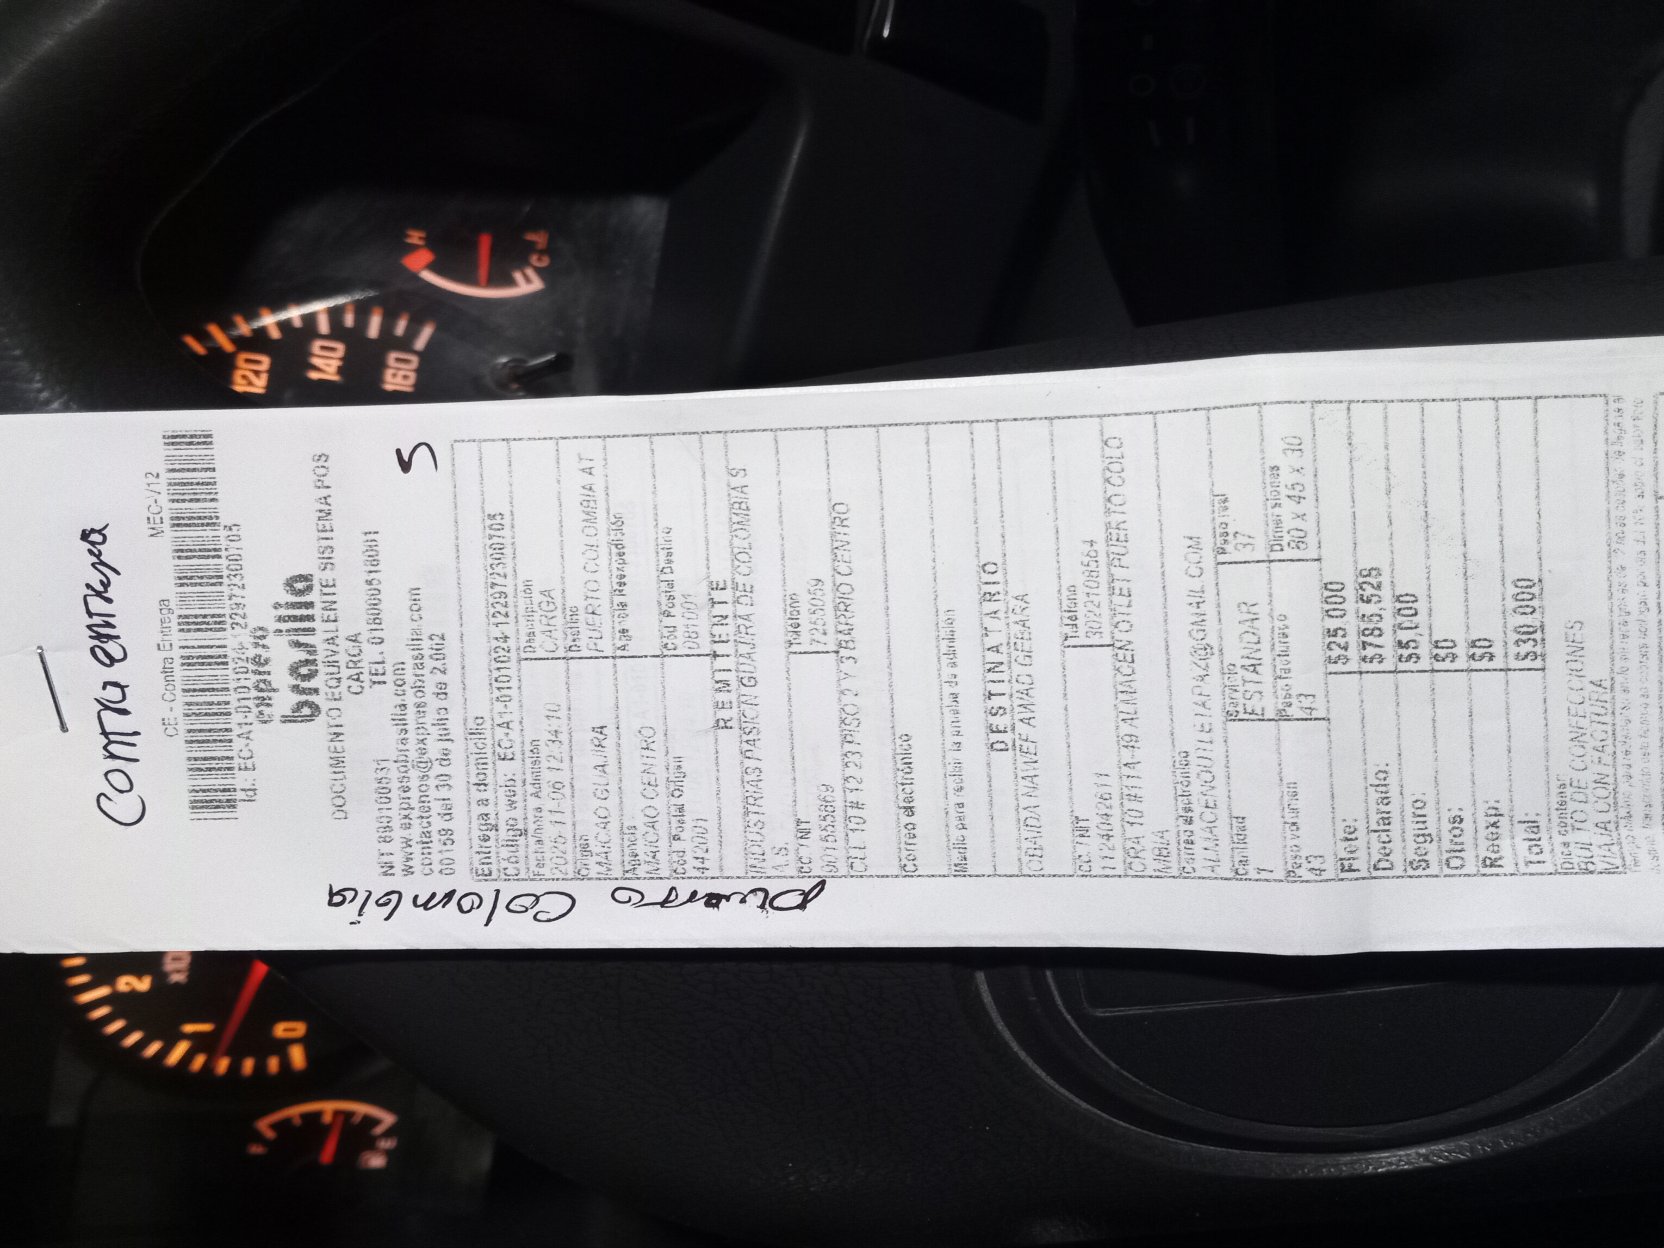 Contra entrega
CE - Contra Entrega MEC-V12
Id.: EC-A1-0101024-122972300703
expreso
brasilia
DOCUMENTO EQUIVALENTE SISTEMA POS
CARGA
NIT 890100531 TEL. 018000518001
www.expresobrasilia.com
contactenos@expresobrasilia.com
00159 del 30 de julio de 2.002
5
Puerto Colombia
Entrega a domicilio
Código web: EC-A1-0101024-122972300703
Fecha/hora Admisión Descripción
2025-11-06 12:34:10 CARGA
Origen Destino
MAICAO GUAJIRA PUERTO COLOMBIA AT
Agencia Agencia Reexpedición
MAICAO CENTRO
Cód Postal Origen Cód Postal Destino
442001 081001
REMITENTE
INDUSTRIAS PASION GUAJIRA DE COLOMBIA S
A.S.
CC / NIT Teléfono
901555869 7258059
CLL 10 # 12 23 PISO 2 Y 3 BARRIO CENTRO
Correo electrónico
Medio para recibir la prueba de admisión
DESTINATARIO
OBAIDA NAWEF AWAD GEBARA
CC / NIT Teléfono
1124042611 3022108564
CRA 10 #11A-49 ALMACEN OTLET PUERTO COLO
MBIA
Correo electrónico
ALMACENOUTLELAPAZ@GMAIL.COM
Cantidad Servicio Peso real
1 ESTANDAR 37
Peso volumen Peso facturado Dimensiones
43 43 80 x 45 x 30
Flete: $25,000
Declarado: $785,529
Seguro: $5,000
Otros: $0
Reexp: $0
Total: $30,000
Dice contener
BULTO DE CONFECCIONES
VIAJA CON FACTURA
120
140
160
H
C
2
1
0
x10
F
E